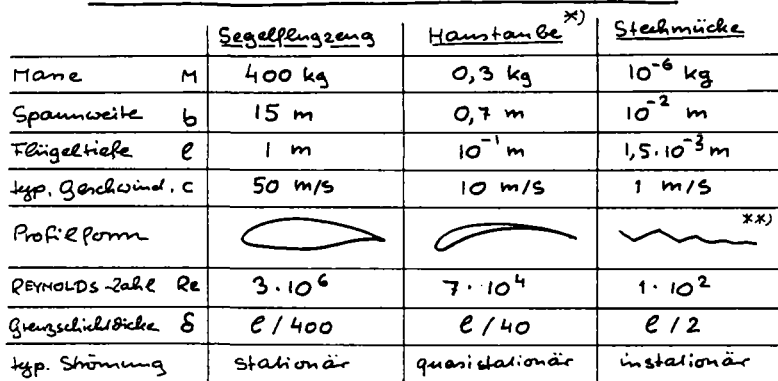 Segelflugzeug Haustaube *) Stechmücke
Masse M 400 kg 0,3 kg 10⁻⁶ kg
Spannweite b 15 m 0,7 m 10⁻² m
Flügeltiefe l 1 m 10⁻¹ m 1,5·10⁻³ m
typ. Geschwind. c 50 m/s 10 m/s 1 m/s
Profilform **)
REYNOLDS-Zahl Re 3·10⁶ 7·10⁴ 1·10²
Grenzschichtdicke δ l/400 l/40 l/2
typ. Strömung stationär quasistationär instationär